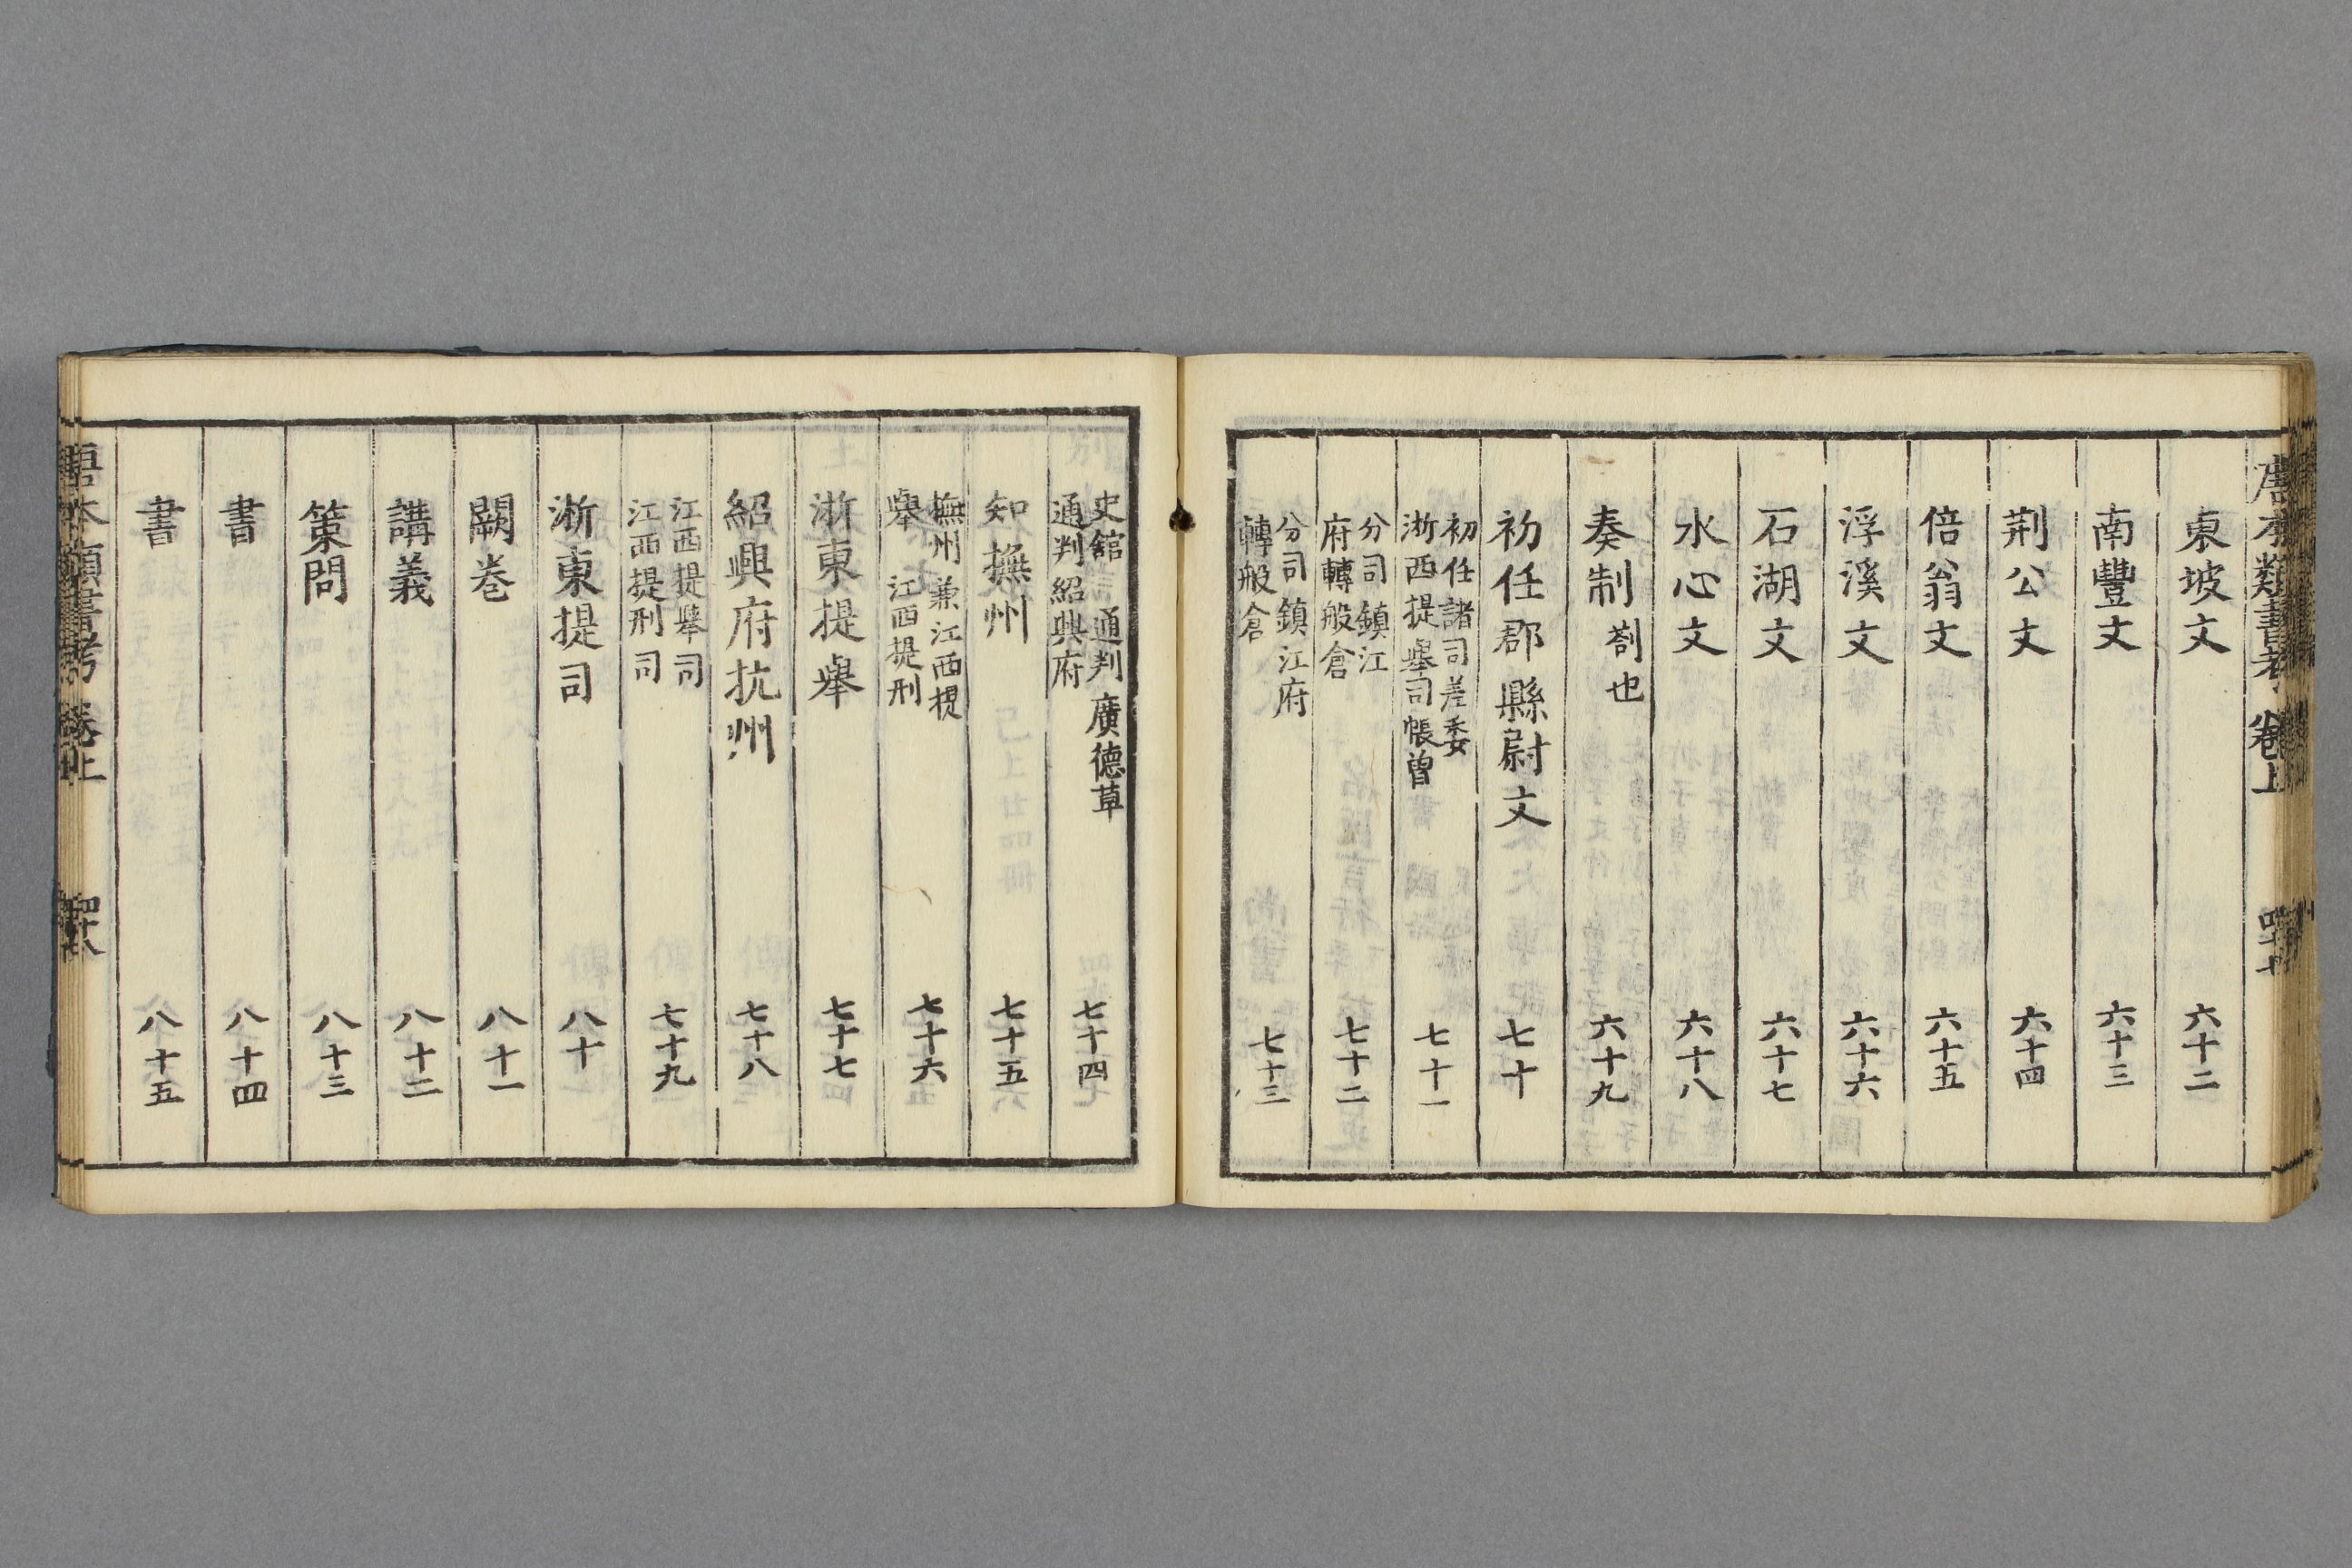 唐本類書考 卷上 四十七
東坡文 六十二
南豐文 六十三
荆公文 六十四
倍翁文 六十五
浮溪文 六十六
石湖文 六十七
水心文 六十八
奏制 劄也 六十九
初任郡縣尉文 七十
初任諸司差委
浙西提舉司帳曽 七十一
分司鎮江
府轉般倉 七十二
分司鎮江府
轉般倉 七十三
史館 通判廣德草
通判紹興府 七十四
知撫州 七十五
撫州兼江西提
舉 江西提刑 七十六
浙東提舉 七十七
紹興府抗州 七十八
江西提舉司
江西提刑司 七十九
浙東提司 八十
闕卷 八十一
講義 八十二
策問 八十三
書 八十四
書 八十五
唐本類書考 卷上 四十八